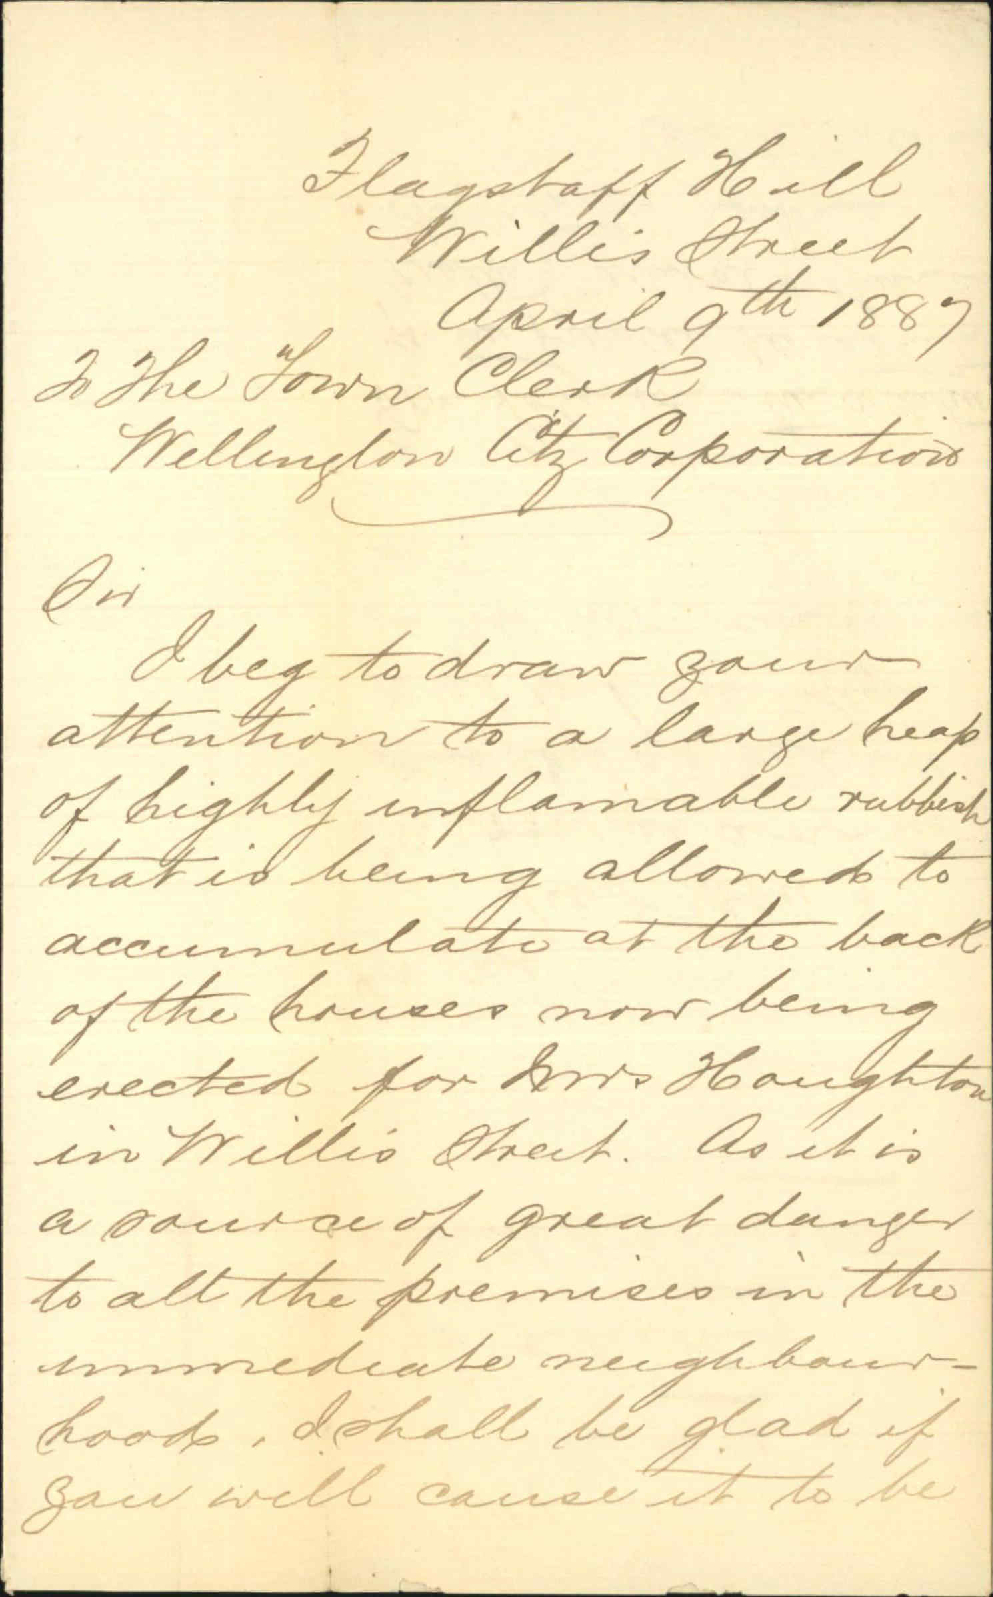 Flagstaff Hill
Willis Street
April 9th 1887
To The Town Clerk
Wellington City Corporation
Sir
I beg to draw your
attention to a large heap
of highly inflamable rubbish
that is being allowed to
accumulate at the back
of the houses now being
erected for Mrs Houghton
in Willis Street. As it is
a source of great danger
to all the premises in the
immediate neighbour-
hood, I shall be glad if
you will cause it to be